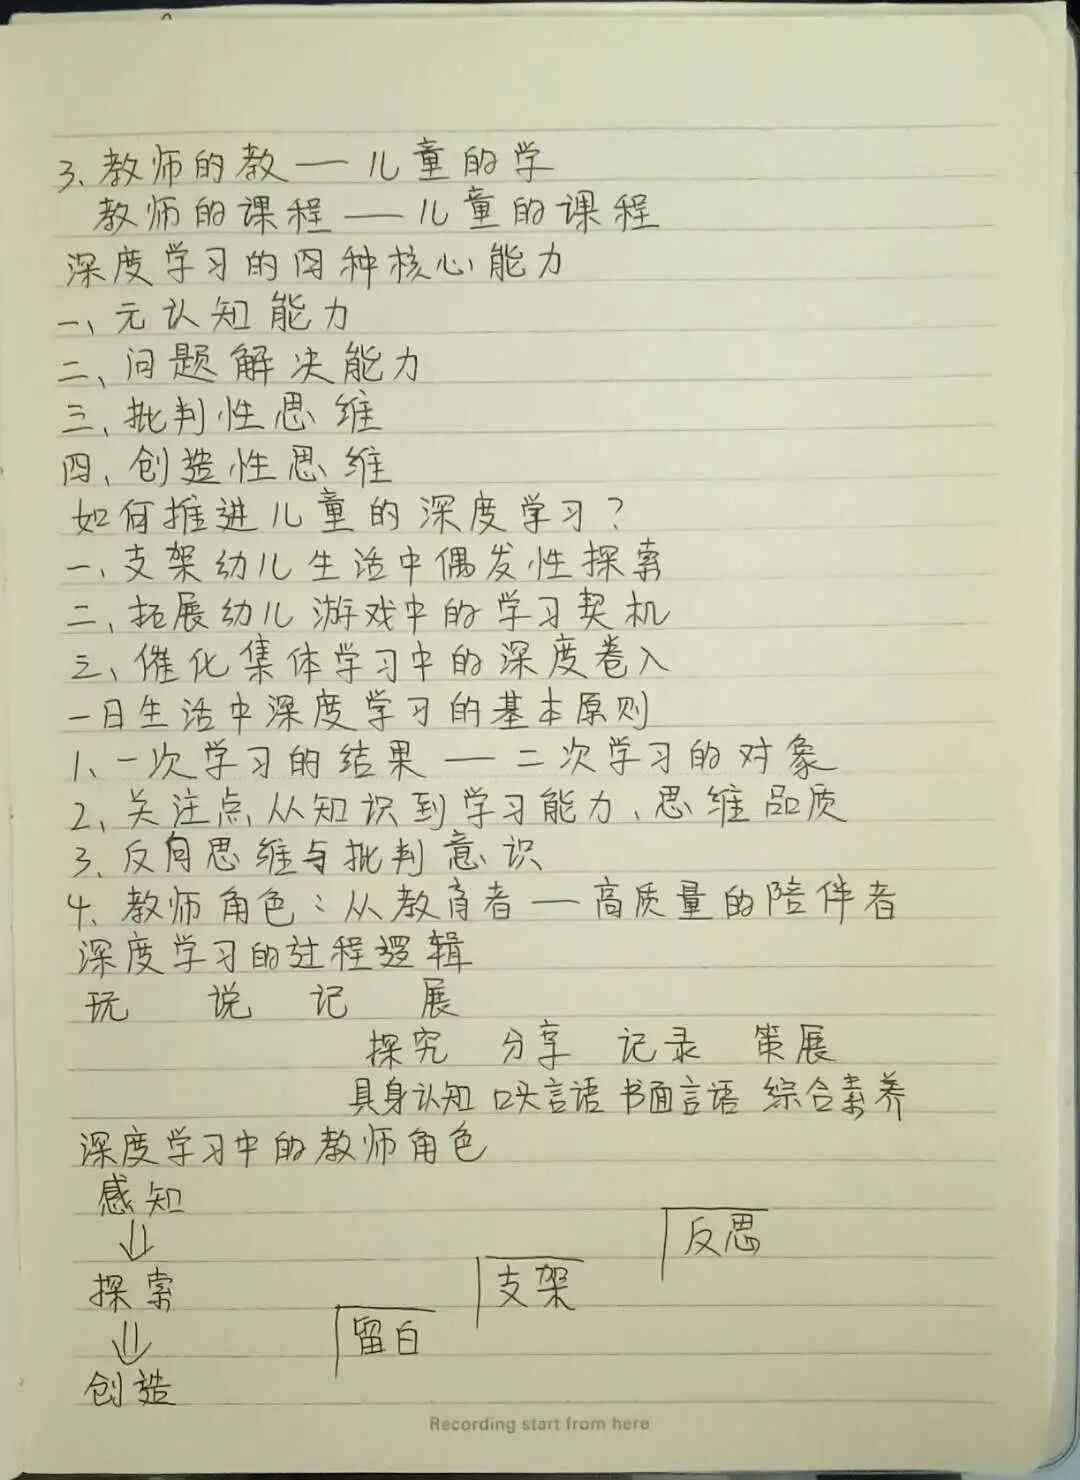 3、教师的教——儿童的学
教师的课程——儿童的课程
深度学习的四种核心能力
一、元认知能力
二、问题解决能力
三、批判性思维
四、创造性思维
如何推进儿童的深度学习？
一、支架幼儿生活中偶发性探索
二、拓展幼儿游戏中的学习契机
三、催化集体学习中的深度卷入
一日生活中深度学习的基本原则
1、一次学习的结果——二次学习的对象
2、关注点从知识到学习能力、思维品质
3、反向思维与批判意识
4、教师角色：从教育者——高质量的陪伴者
深度学习的过程逻辑
玩 说 记 展
探究 分享 记录 策展
具身认知 口头言语 书面言语 综合素养
深度学习中的教师角色
感知
⇓ 反思
探索 支架
⇓ 留白
创造
Recording start from here